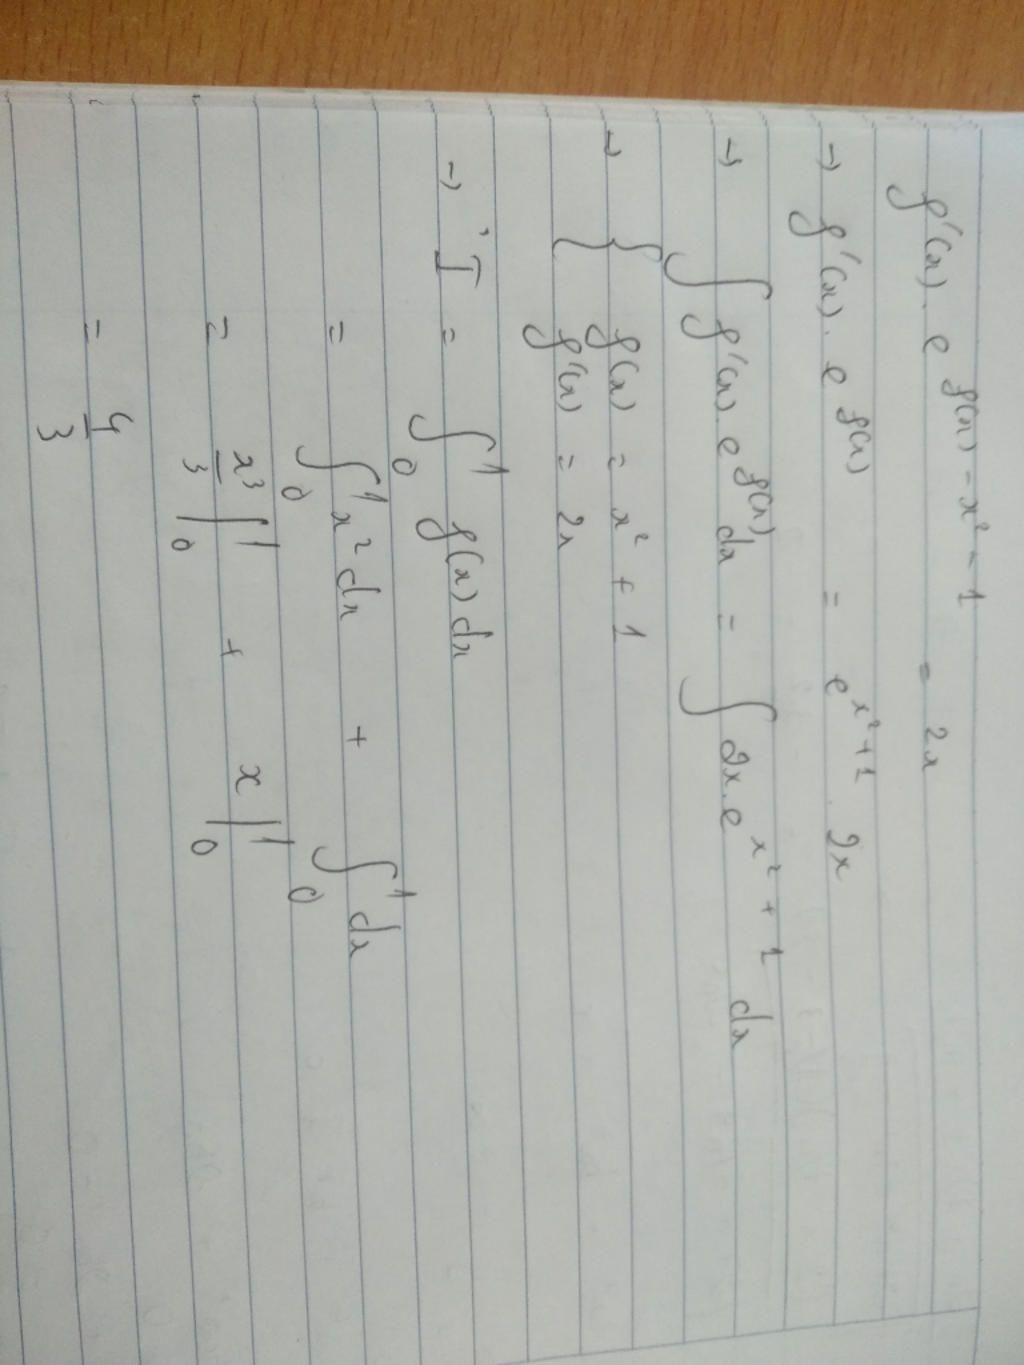 f'(x) . e^{f(x) - x² - 1} = 2x
→ f'(x) . e^{f(x)} = e^{x² + 1} . 2x
→ ∫ f'(x) . e^{f(x)} dx = ∫ 2x . e^{x² + 1} dx
→ { f(x) = x² + 1
f'(x) = 2x
→ I = ∫₀¹ f(x) dx
= ∫₀¹ x² dx + ∫₀¹ dx
= x³/3 |₀¹ + x |₀¹
= 4/3